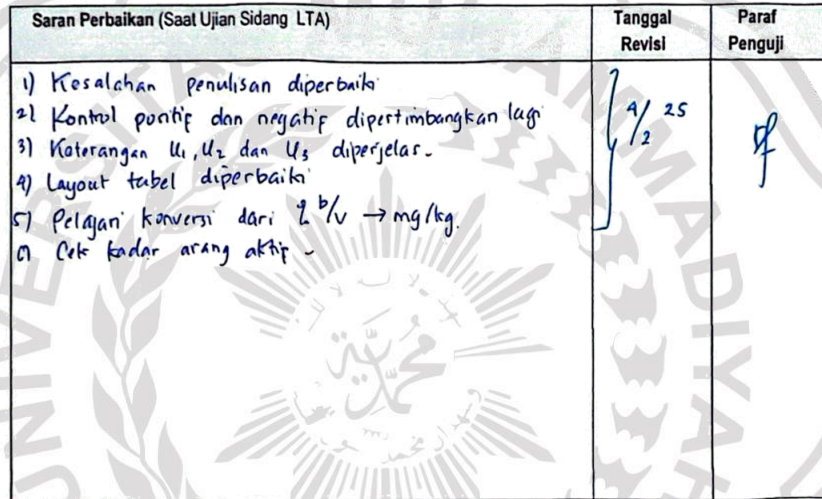 Saran Perbaikan (Saat Ujian Sidang LTA)
Tanggal Revisi
Paraf Penguji
1) Kesalahan penulisan diperbaiki
2) Kontrol positif dan negatif dipertimbangkan lagi
3) Keterangan U1, U2 dan U3 diperjelas.
4) Layout tabel diperbaiki
5) Pelajari konversi dari % b/v → mg/kg.
6) Cek kadar arang aktif -
4/2 25
UNIVERSITAS MUHAMMADIYAH